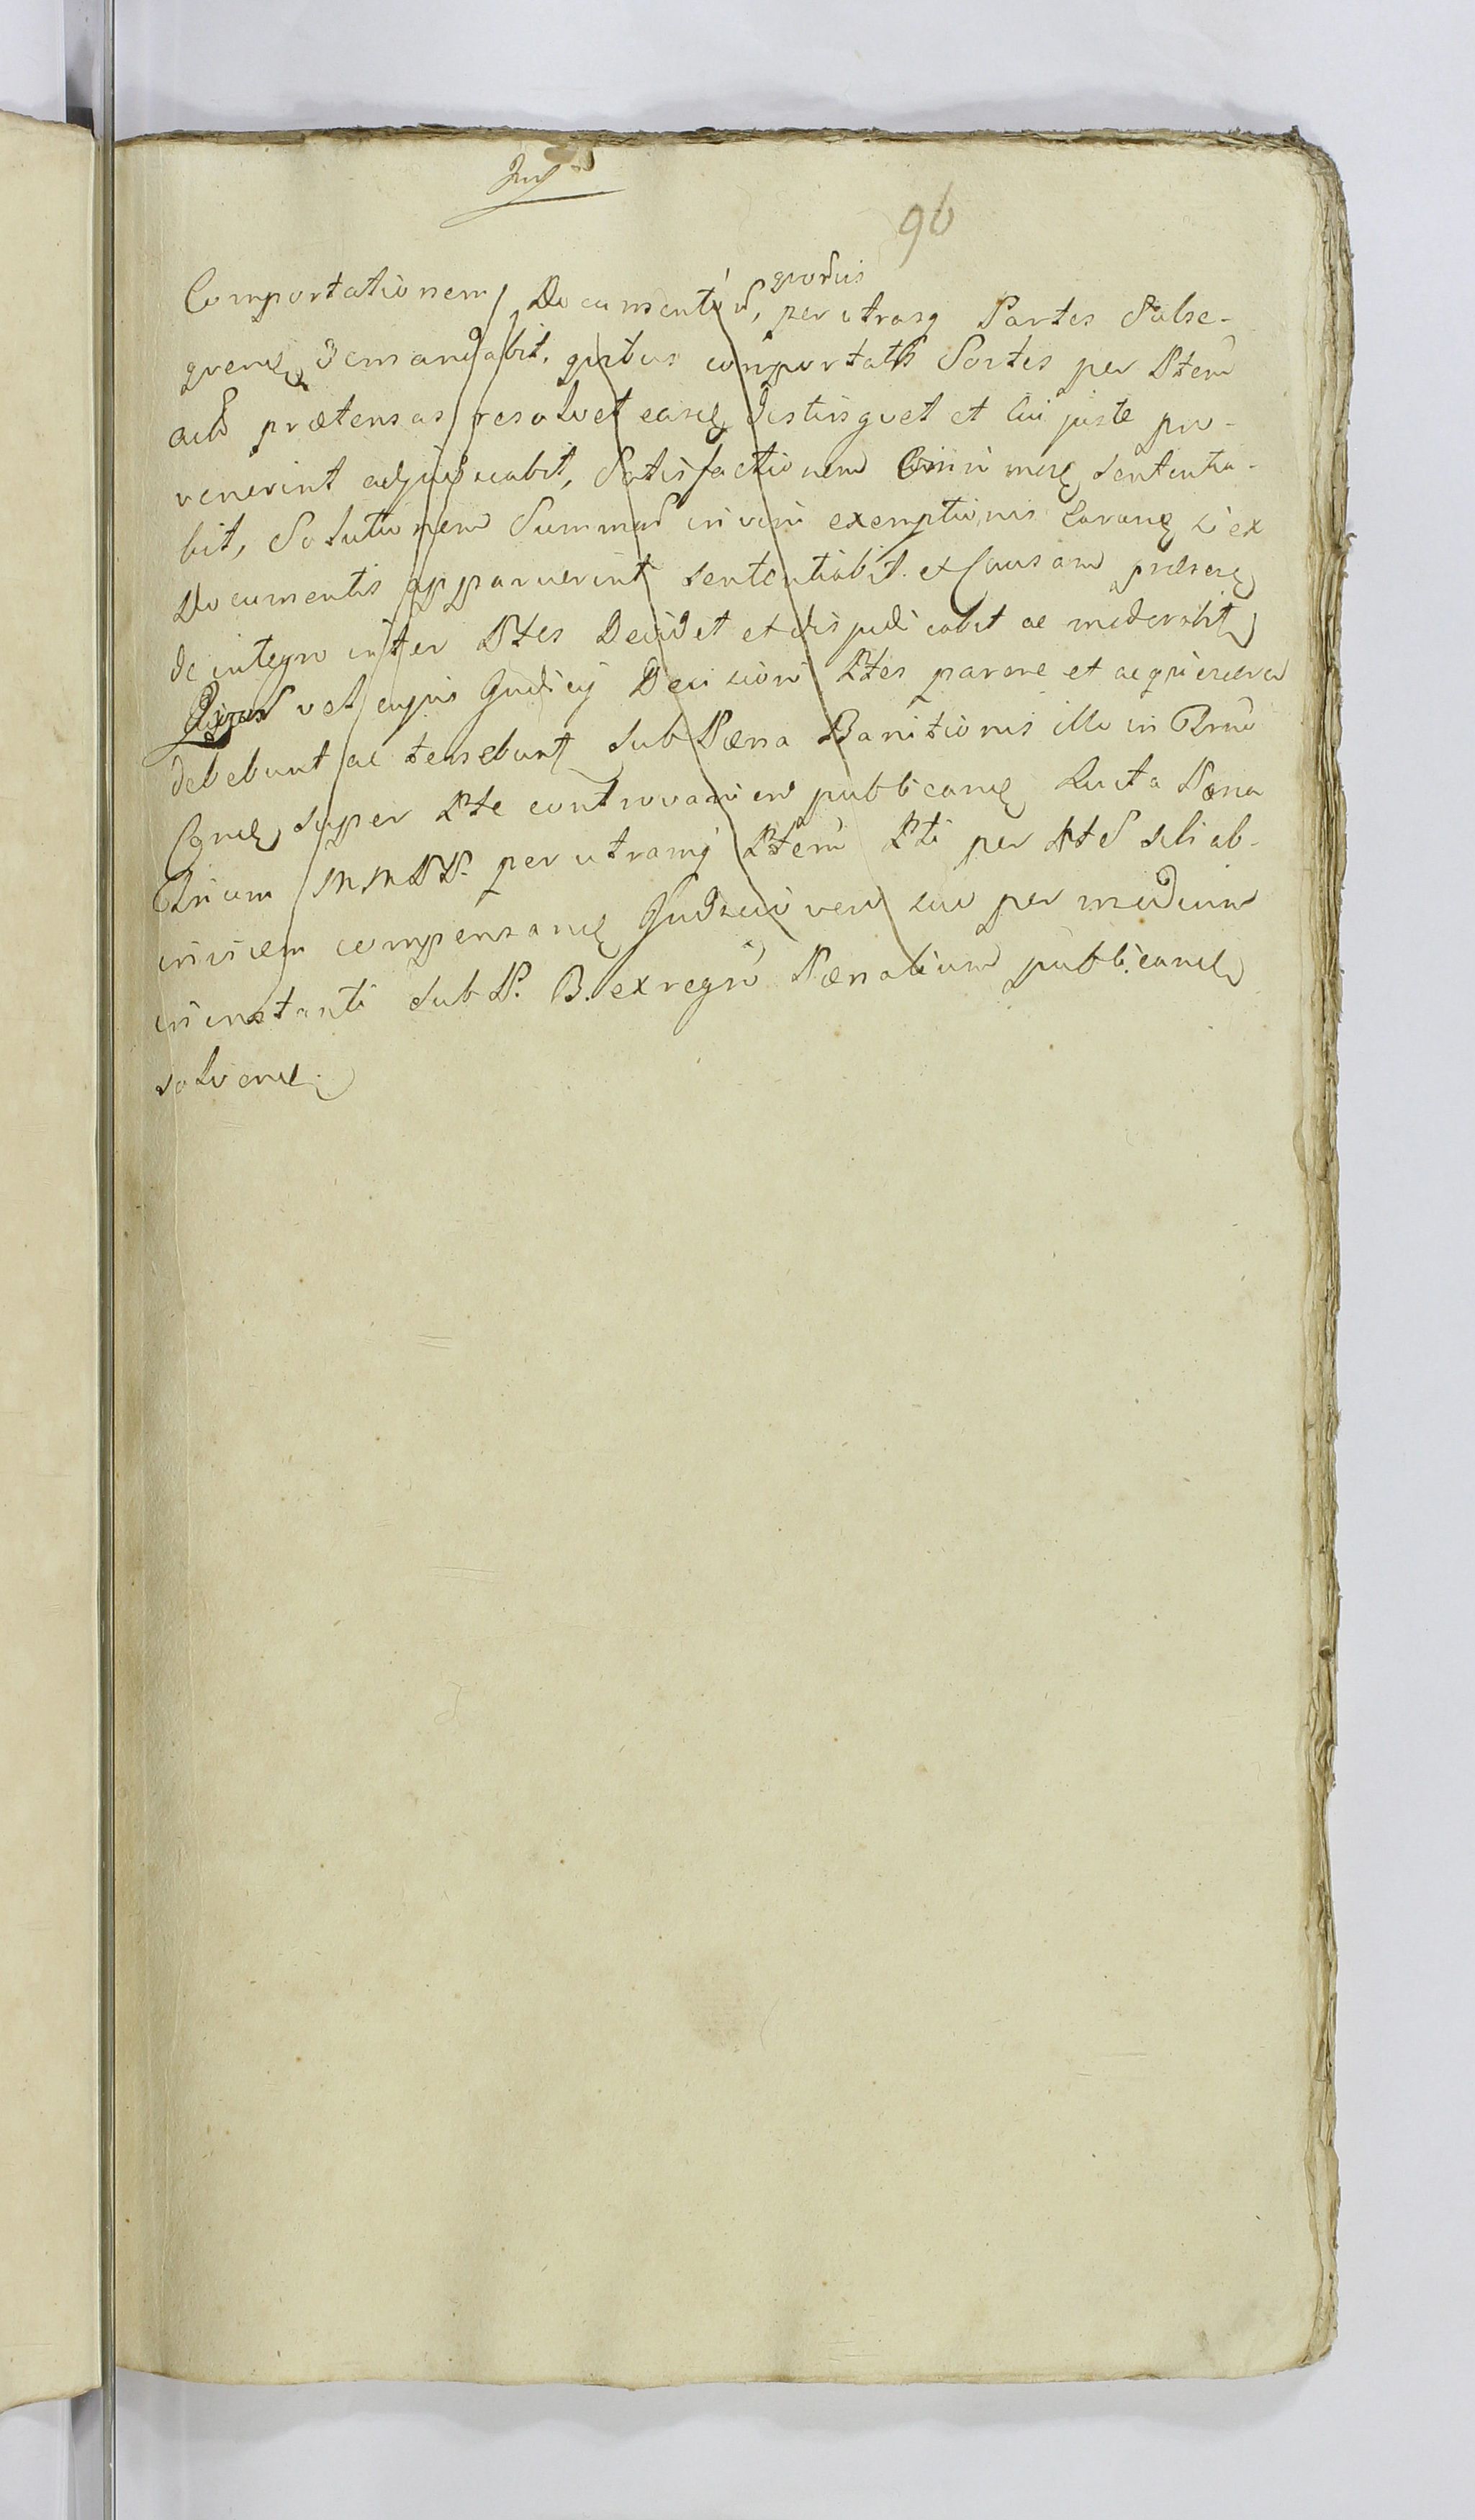 96
quorsis
Comportationem Documentor, per utrasq Partes Subse-
quend demandabit. quibus comportatis Sortes per Ptem
actd prætensas resolvet easq distinguet et cui juste pro-
venerint adjudicabit, Satisfactionem sententia-
bit, Solutionem Summar in vim exemptionis earund si ex
Documentis apparuerint sententiabit. et Causam præsen
de integro inter Ptes Decidet et dis judicabit ac moderabit
vel cujus Judicij Decisioni Ptes parere et acquiescere
debebunt ac tenebunt sub Pæna Banitionis illo in Pnu
Cond super Pte contravanien publicand Lucta Pæna
Trium MMPP. per utramq Ptem Pti per Pte sibi ab-
invicem compensand Judicio vero suo per medium
in instanti sub P. B. ex regro Pænalium publicand
solvend.